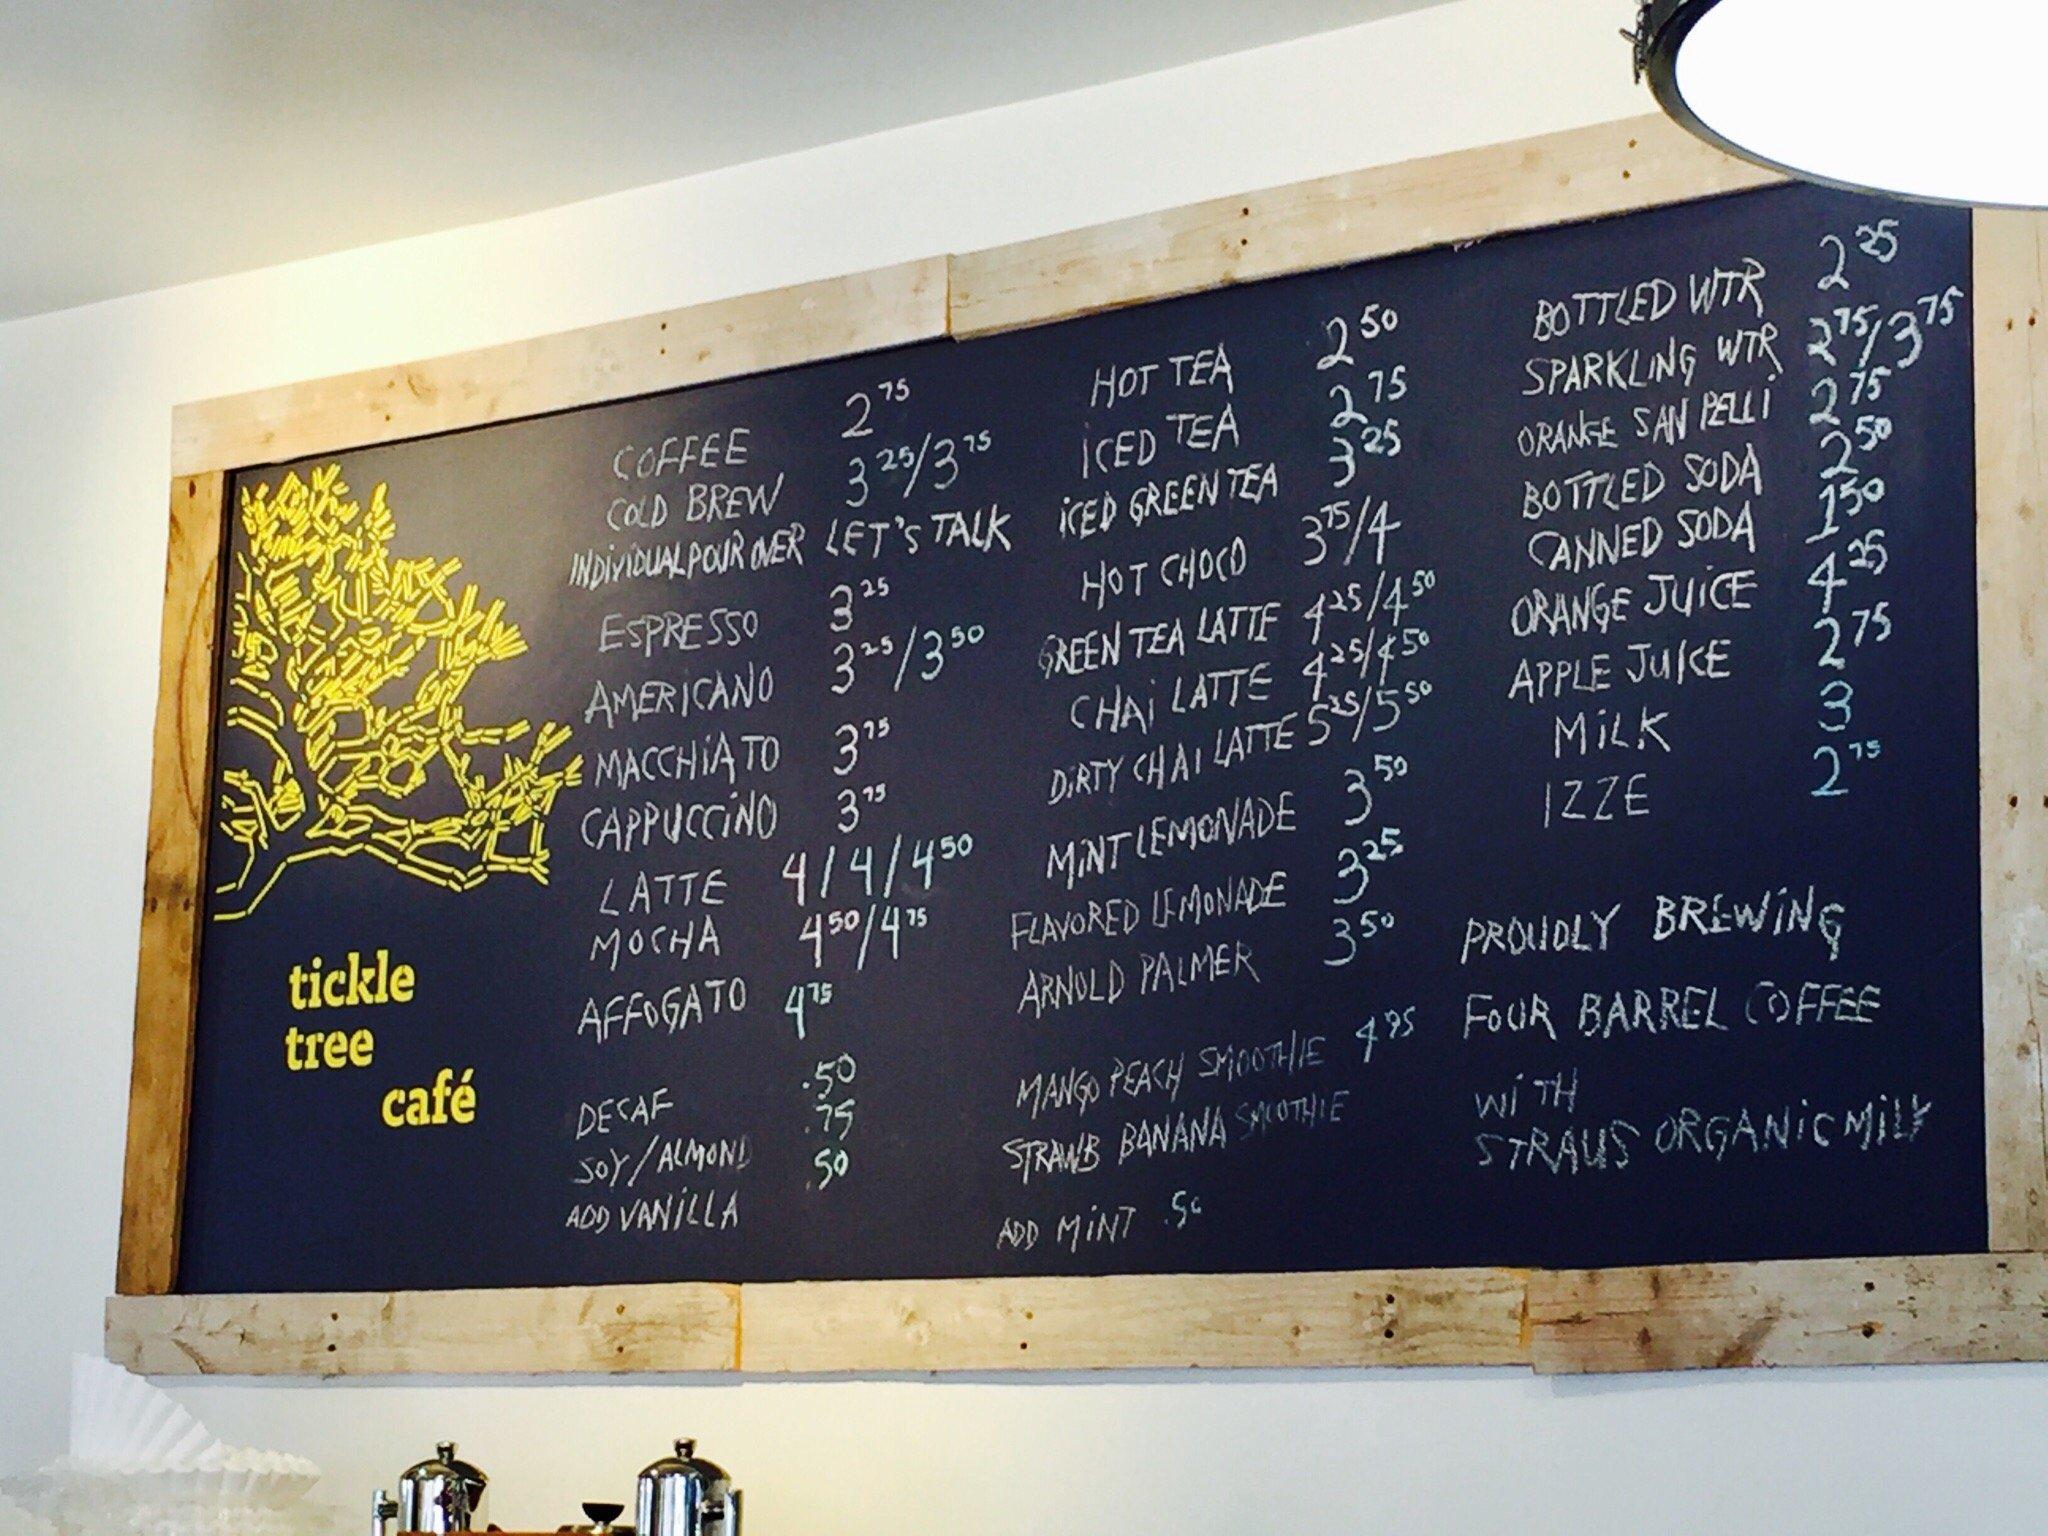 tickle
tree
café
COFFEE 2.75
COLD BREW 3.25/3.75
INDIVIDUAL POUR OVER LET'S TALK
ESPRESSO 3.25
AMERICANO 3.25/3.50
MACCHIATO 3.75
CAPPUCCINO 3.75
LATTE 4/4/4.50
MOCHA 4.50/4.75
AFFOGATO 4.75
DECAF .50
SOY/ALMOND .75
ADD VANILLA .50
HOT TEA 2.50
ICED TEA 2.75
ICED GREEN TEA 3.25
HOT CHOCO 3.75/4
GREEN TEA LATTE 4.25/4.50
CHAI LATTE 4.25/4.50
DIRTY CHAI LATTE 5.25/5.50
MINT LEMONADE 3.50
FLAVORED LEMONADE 3.25
ARNOLD PALMER 3.50
MANGO PEACH SMOOTHIE 4.95
STRAWB BANANA SMOOTHIE
ADD MINT .50
BOTTLED WTR 2.25
SPARKLING WTR 2.75/3.75
ORANGE SAN PELLI 2.75
BOTTLED SODA 2.50
CANNED SODA 1.50
ORANGE JUICE 4.25
APPLE JUICE 2.75
MILK 3
IZZE 2.75
PROUDLY BREWING
FOUR BARREL COFFEE
WITH
STRAUS ORGANIC MILK